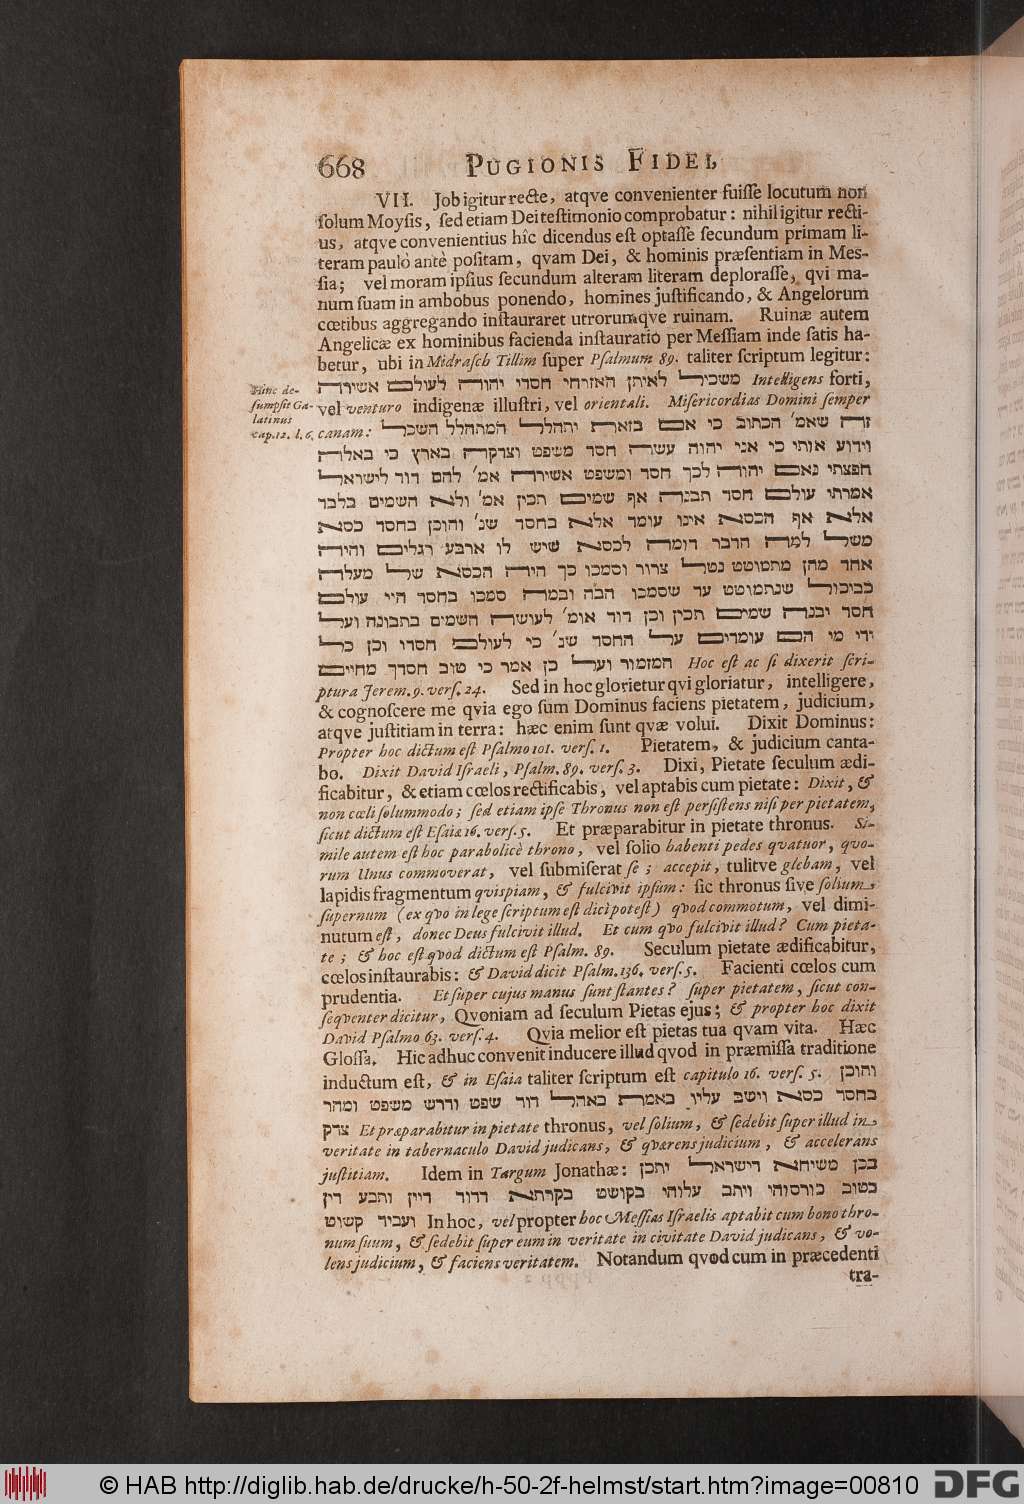 668 PUGIONIS FIDEI,
VII. Job igitur recte, atqve convenienter fuiſſe locutum non
ſolum Moyſis, ſed etiam Dei teſtimonio comprobatur: nihil igitur recti-
us, atqve convenientius hîc dicendus eſt optaſſe ſecundum primam li-
teram paulò antè poſitam, qvam Dei, & hominis præſentiam in Meſ-
ſia; vel moram ipſius ſecundum alteram literam deploraſſe, qvi ma-
num ſuam in ambobus ponendo, homines juſtificando, & Angelorum
cœtibus aggregando inſtauraret utrorumqve ruinam. Ruinæ autem
Angelicæ ex hominibus facienda inſtauratio per Meſſiam inde ſatis ha-
betur, ubi in Midraſch Tillim ſuper Pſalmum 89. taliter ſcriptum legitur:
משכיל לאיתן האזרחי חסדי יהוה לעולם אשירה Intelligens forti,
vel venturo indigenæ illuſtri, vel orientali. Miſericordias Domini ſemper
Hinc de-
ſumpſit Ga-
latinus
cap. 12. l. 6.
canam: זה שאמ' הכתוב כי אם בזאת יתהלל המתהלל השכל
וידוע אותי כי אני יהוה עשה חסד משפט וצדקה בארץ כי באלה
חפצתי נאם יהוה לכך חסד ומשפט אשירה אמ' להם דוד לישראל
אמרתי עולם חסד תבנה אף שמים תכין אמ' ולא השמים בלבד
אלא אף הכסא אינו עומד אלא בחסד שנ' והוכן בחסד כסא
משל למה הדבר דומה לכסא שיש לו ארבע רגלים והיה
אחד מהן מתמוטט נטל צרור וסמכו כך היה הכסא של מעלה
כביכול שנתמוטט עד שסמכו הבה ובמה סמכו בחסד היי עולם
חסד יבנה שמים תכין וכן דוד אומ' לעושה השמים בתבונה ועל
ידי מי הם עומדים על החסד שנ' כי לעולם חסדו וכן כל
המזמור ועל כן אמר כי טוב חסדך מחיים Hoc eſt ac ſi dixerit ſcri-
ptura Jerem. 9. verſ. 24. Sed in hoc glorietur qvi gloriatur, intelligere,
& cognoſcere me qvia ego ſum Dominus faciens pietatem, judicium,
atqve juſtitiam in terra: hæc enim ſunt qvæ volui. Dixit Dominus:
Propter hoc dictum eſt Pſalmo 101. verſ. 1. Pietatem, & judicium canta-
bo. Dixit David Iſraeli, Pſalm. 89. verſ. 3. Dixi, Pietate ſeculum ædi-
ficabitur, & etiam cœlos rectificabis, vel aptabis cum pietate: Dixit, &
non cœli ſolummodo; ſed etiam ipſe Thronus non eſt perſiſtens niſi per pietatem,
ſicut dictum eſt Eſaiæ 16. verſ. 5. Et præparabitur in pietate thronus. Si-
mile autem eſt hoc parabolicè throno, vel ſolio habenti pedes qvatuor, qvo-
rum Unus commoverat, vel ſubmiſerat ſe; accepit, tulitve glebam, vel
lapidis fragmentum qvispiam, & fulcivit ipſum: ſic thronus ſive ſolium
ſupernum (ex qvo in lege ſcriptum eſt dici poteſt) qvod commotum, vel dimi-
nutum eſt, donec Deus fulcivit illud. Et cum qvo fulcivit illud? Cum pieta-
te; & hoc eſt qvod dictum eſt Pſalm. 89. Seculum pietate ædificabitur,
cœlos inſtaurabis: & David dicit Pſalm. 136. verſ. 5. Facienti cœlos cum
prudentia. Et ſuper cujus manus ſunt ſtantes? ſuper pietatem, ſicut con-
ſeqventer dicitur, Qvoniam ad ſeculum Pietas ejus; & propter hoc dixit
David Pſalmo 63. verſ. 4. Qvia melior eſt pietas tua qvam vita. Hæc
Gloſſa. Hic adhuc convenit inducere illud qvod in præmiſſa traditione
inductum eſt, & in Eſaia taliter ſcriptum eſt capitulo 16. verſ. 5. והוכן
בחסד כסא וישב עליו באמת באהל דוד שפט ודרש משפט ומהר
צדק Et præparabitur in pietate thronus, vel ſolium, & ſedebit ſuper illud in
veritate in tabernaculo David judicans, & qværens judicium, & accelerans
juſtitiam. Idem in Targum Jonathæ: בכן משיחא דישראל יתכן
בטוב כורסוהי ויתב עלוהי בקושט בקרתא דדוד דיין ותבע דין
ועביד קשוט In hoc, vel propter hoc Meſſias Iſraelis aptabit cum bono thro-
num ſuum, & ſedebit ſuper eum in veritate in civitate David judicans, & vo-
lens judicium, & faciens veritatem. Notandum qvod cum in præcedenti
tra-
© HAB http://diglib.hab.de/drucke/h-50-2f-helmst/start.htm?image=00810
DFG